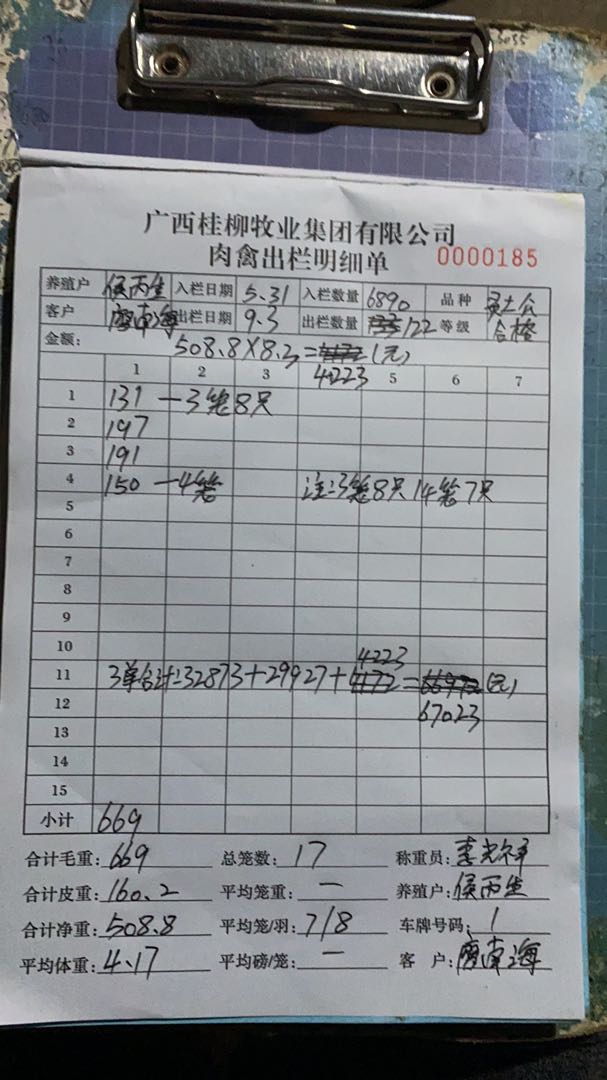 广西桂柳牧业集团有限公司
肉禽出栏明细单 0000185
养殖户 侯丙生 入栏日期 5.31 入栏数量 6890 品种
客户 廖南海 出栏日期 9.3 出栏数量 122 等级 合格
金额: 508.8×8.3=4223(元)
1 2 3 5 6 7
1 131 一3笼8只
2 197
3 191
4 150 一4笼 注:3笼8只 14笼7只
5
6
7
8
9
10
11 3单合计:32873+29927+4223=67023(元)
12
13
14
15
小计 669
合计毛重: 669 总笼数: 17 称重员:
合计皮重: 160.2 平均笼重: 一 养殖户: 侯丙生
合计净重: 508.8 平均笼/羽: 7/8 车牌号码: 1
平均体重: 4.17 平均磅/笼: 一 客 户: 廖南海